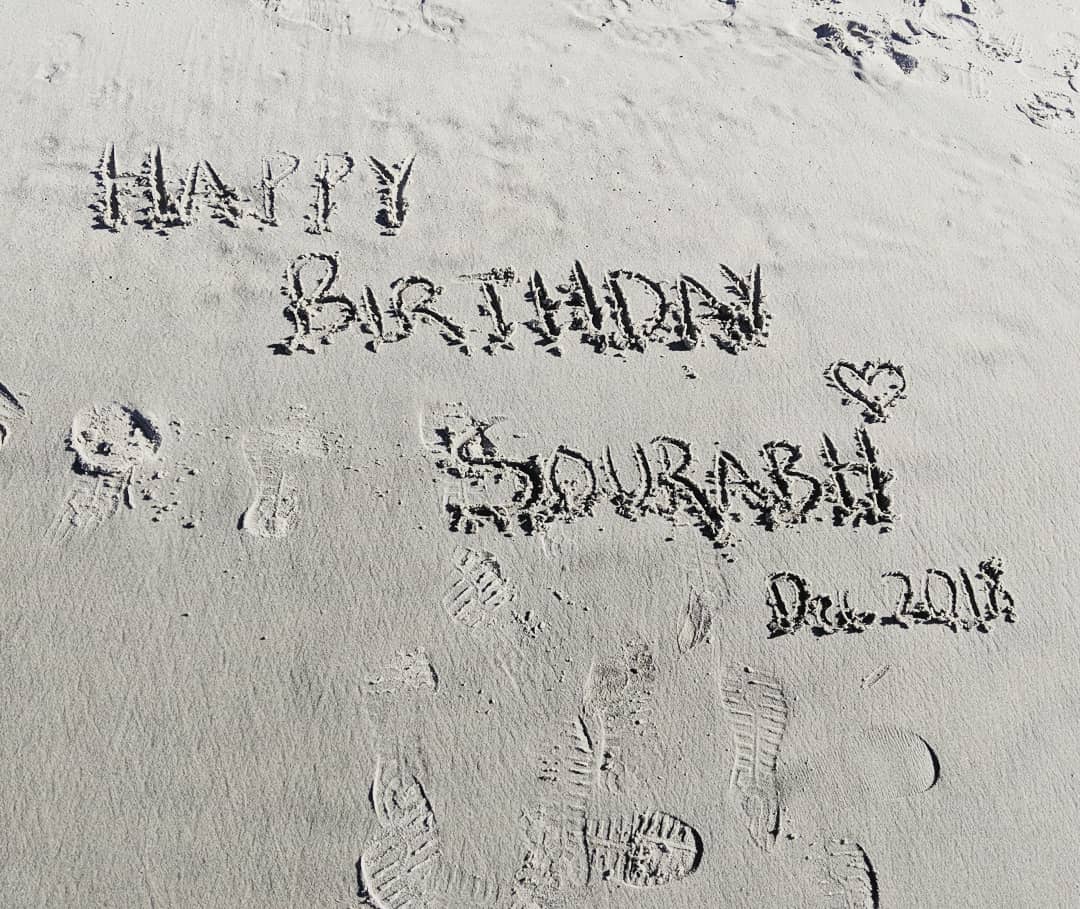 HAPPY
BIRTHDAY
SOURABH
Dec 2018